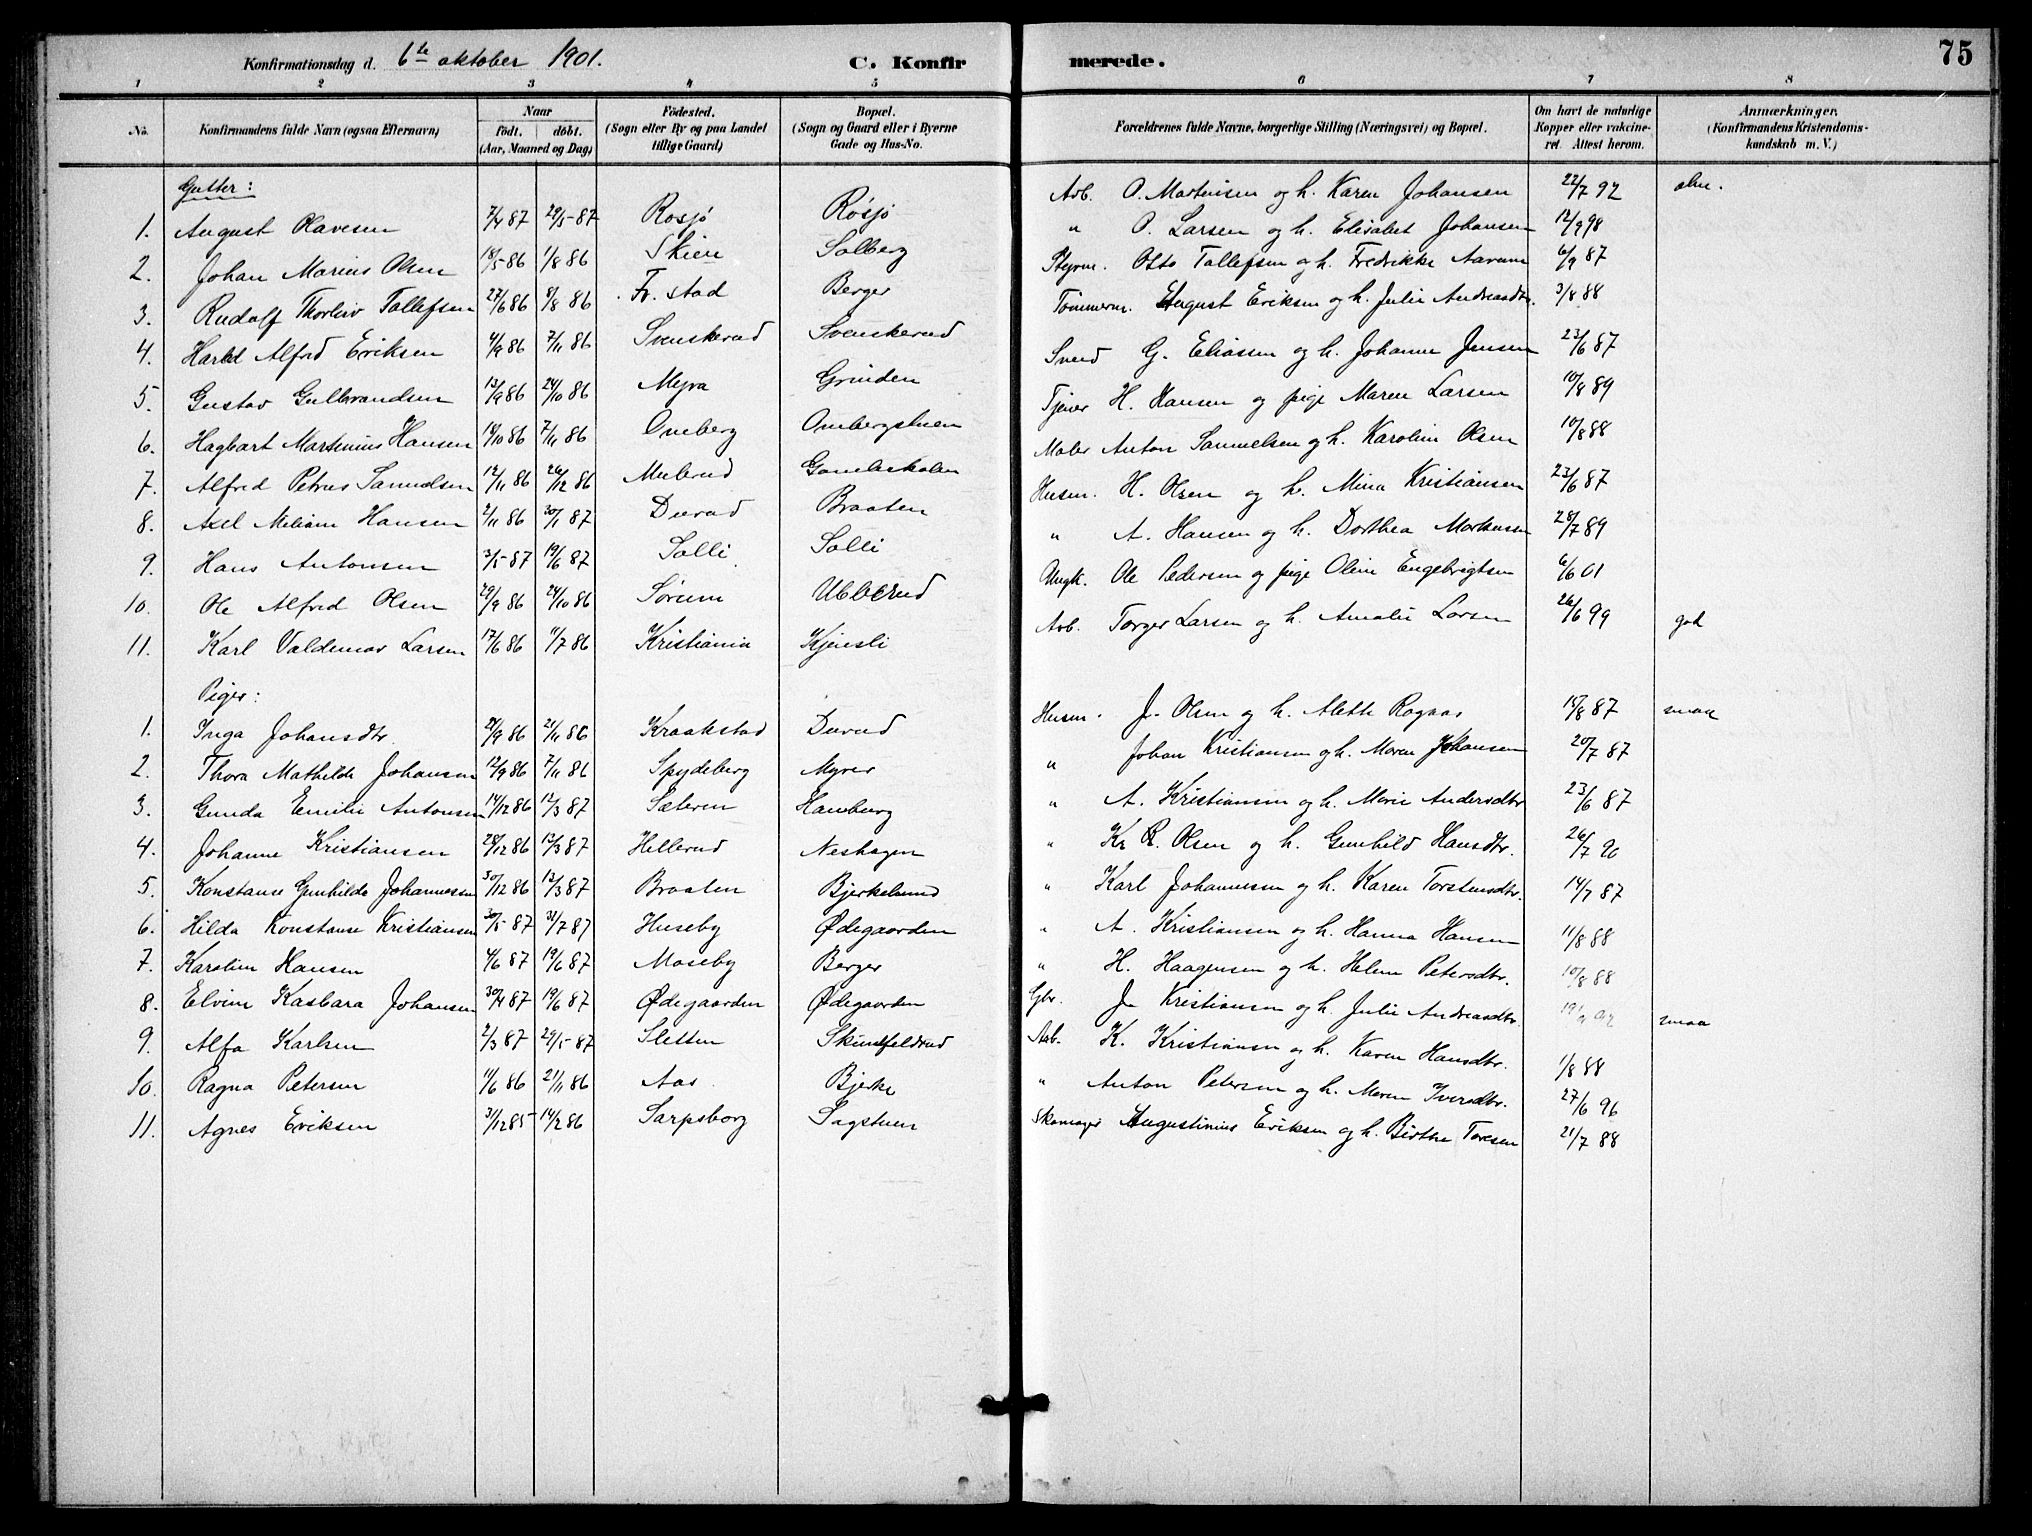 75
Konfirmationsdag d. 6te oktober 1901. C. Konfirmerede.
1 2 3 4 5 6 7 8
No. Konfirmandens fulde Navn (ogsaa Efternavn) Naar födt. döbt. (Aar, Maaned og Dag) Födested. (Sogn eller By og paa Landet tillige Gaard) Bopæl. (Sogn og Gaard eller i Byerne Gade og Hus-No. Forældrenes fulde Navne, borgerlige Stilling (Næringsvei) og Bopæl. Om havt de naturlige Kopper eller vakcineret. Attest herom. Anmærkninger. (Konfirmandens Kristendomskundskab m. V.)
Gutter:
1. August Olavesen 7/4 87 29/5-87 Rosjö Rösjö Arb. O. Martinsen og h. Karen Johansen 22/7 92
2. Johan Marius Olsen 18/5-86 1/8 86 Skien Solberg " O. Larsen og h. Elisabet Johansen 12/9 98
3. Rudolf Thorleiv Tollefsen 27/6 86 8/8 86 Fr. stad Berger Styrm. Otto Tollefsen og h. Fredrikke Aarum 6/9 87
4. Harald Alfred Eriksen 4/9 86 7/11 86 Svenskerud Svenskerud Tömmerm. August Eriksen og h. Julie Andreasdtr. 3/8 88
5. Gustav Gulbrandsen 13/9 86 24/10 86 Myra Grinden Svend G. Eliassen og h. Johanne Jensen 23/6 87
6. Hagbart Martinius Hansen 14/10 86 7/11 86 Omberg Ombergstuen Tjener H. Hansen og pige Maren Larsen 10/8 89
7. Alfred Petrus Samuelsen 12/11 86 26/12 86 Mulerud Gamleskolen Maler Anton Samuelsen og h. Karoline Olsen 10/8 88
8. Axel Miliam Hansen 2/11 86 30/1 87 Durud Braaten Husm. H. Olsen og h. Mina Kristiansen 23/6 87
9. Hans Antonsen 3/5-87 19/6 87 Solli Solli " A. Hansen og h. Dorthea Martinsen 28/7 89
10. Ole Alfred Olsen 29/9 86 24/10 86 Sörum Ubberud Ungk. Ole Pedersen og pige Oline Engebrigtsen 6/6 01
11. Karl Valdemar Larsen 17/6 86 11/7 86 Kristiania Kjensli Arb. Torger Larsen og h. Amalie Larsen 26/6 99 god
Piger:
1. Inga Johansdtr. 27/9 86 21/11 86 Kraakstad Durud Husm. J. Olsen og h. Alette Rognas 15/8 87 smaa
2. Thora Mathilde Johansen 12/9 86 7/11 86 Spydeberg Myrer " Johan Kristiansen og h. Maren Johansen 20/7 87
3. Gunda Emilie Antonsen 14/12 86 12/3 87 Sæteren Hamburg " A. Kristiansen og h. Marie Andersdtr 23/6 87
4. Johanne Kristiansen 28/12 86 13/3 87 Hellerud Neshagen " Kr R. Olsen og h. Gunhild Hansdtr. 26/7 90
5. Konstanse Gunhilda Johannessen 30/12 86 13/3 87 Braaten Bjerkelund " Karl Johannessen og h. Karen Torstensdtr. 14/7 87
6. Hilda Konstanse Kristiansen 30/5 87 31/7 87 Huseby Ødegaarden " A. Kristiansen og h. Hanna Hansen 11/8 88
7. Karoline Hansen 4/6 87 19/6 87 Moseby Berger " H. Haagensen og h. Helene Petersdtr. 10/8 88
8. Elvine Kasbara Johansen 30/4 87 19/6 87 Ødegaarden Ødegaarden Gbr. J. Kristiansen og h. Julie Andreasdtr.
9. Alfa Karlsen 2/3 87 29/5-87 Sletten Arb. K. Kristiansen og h. Karen Hansdtr. 1/8 88 smaa
10. Ragna Petersen 11/6 86 21/11 86 Aas Bjerke " Anton Petersen og h. Maren Iversdtr. 27/6 96
11. Agnes Eriksen 31/12 85 14/2 86 Sarpsborg Sagstuen Skomager Augustinius Eriksen og h. Birthe Toresen 21/7 88